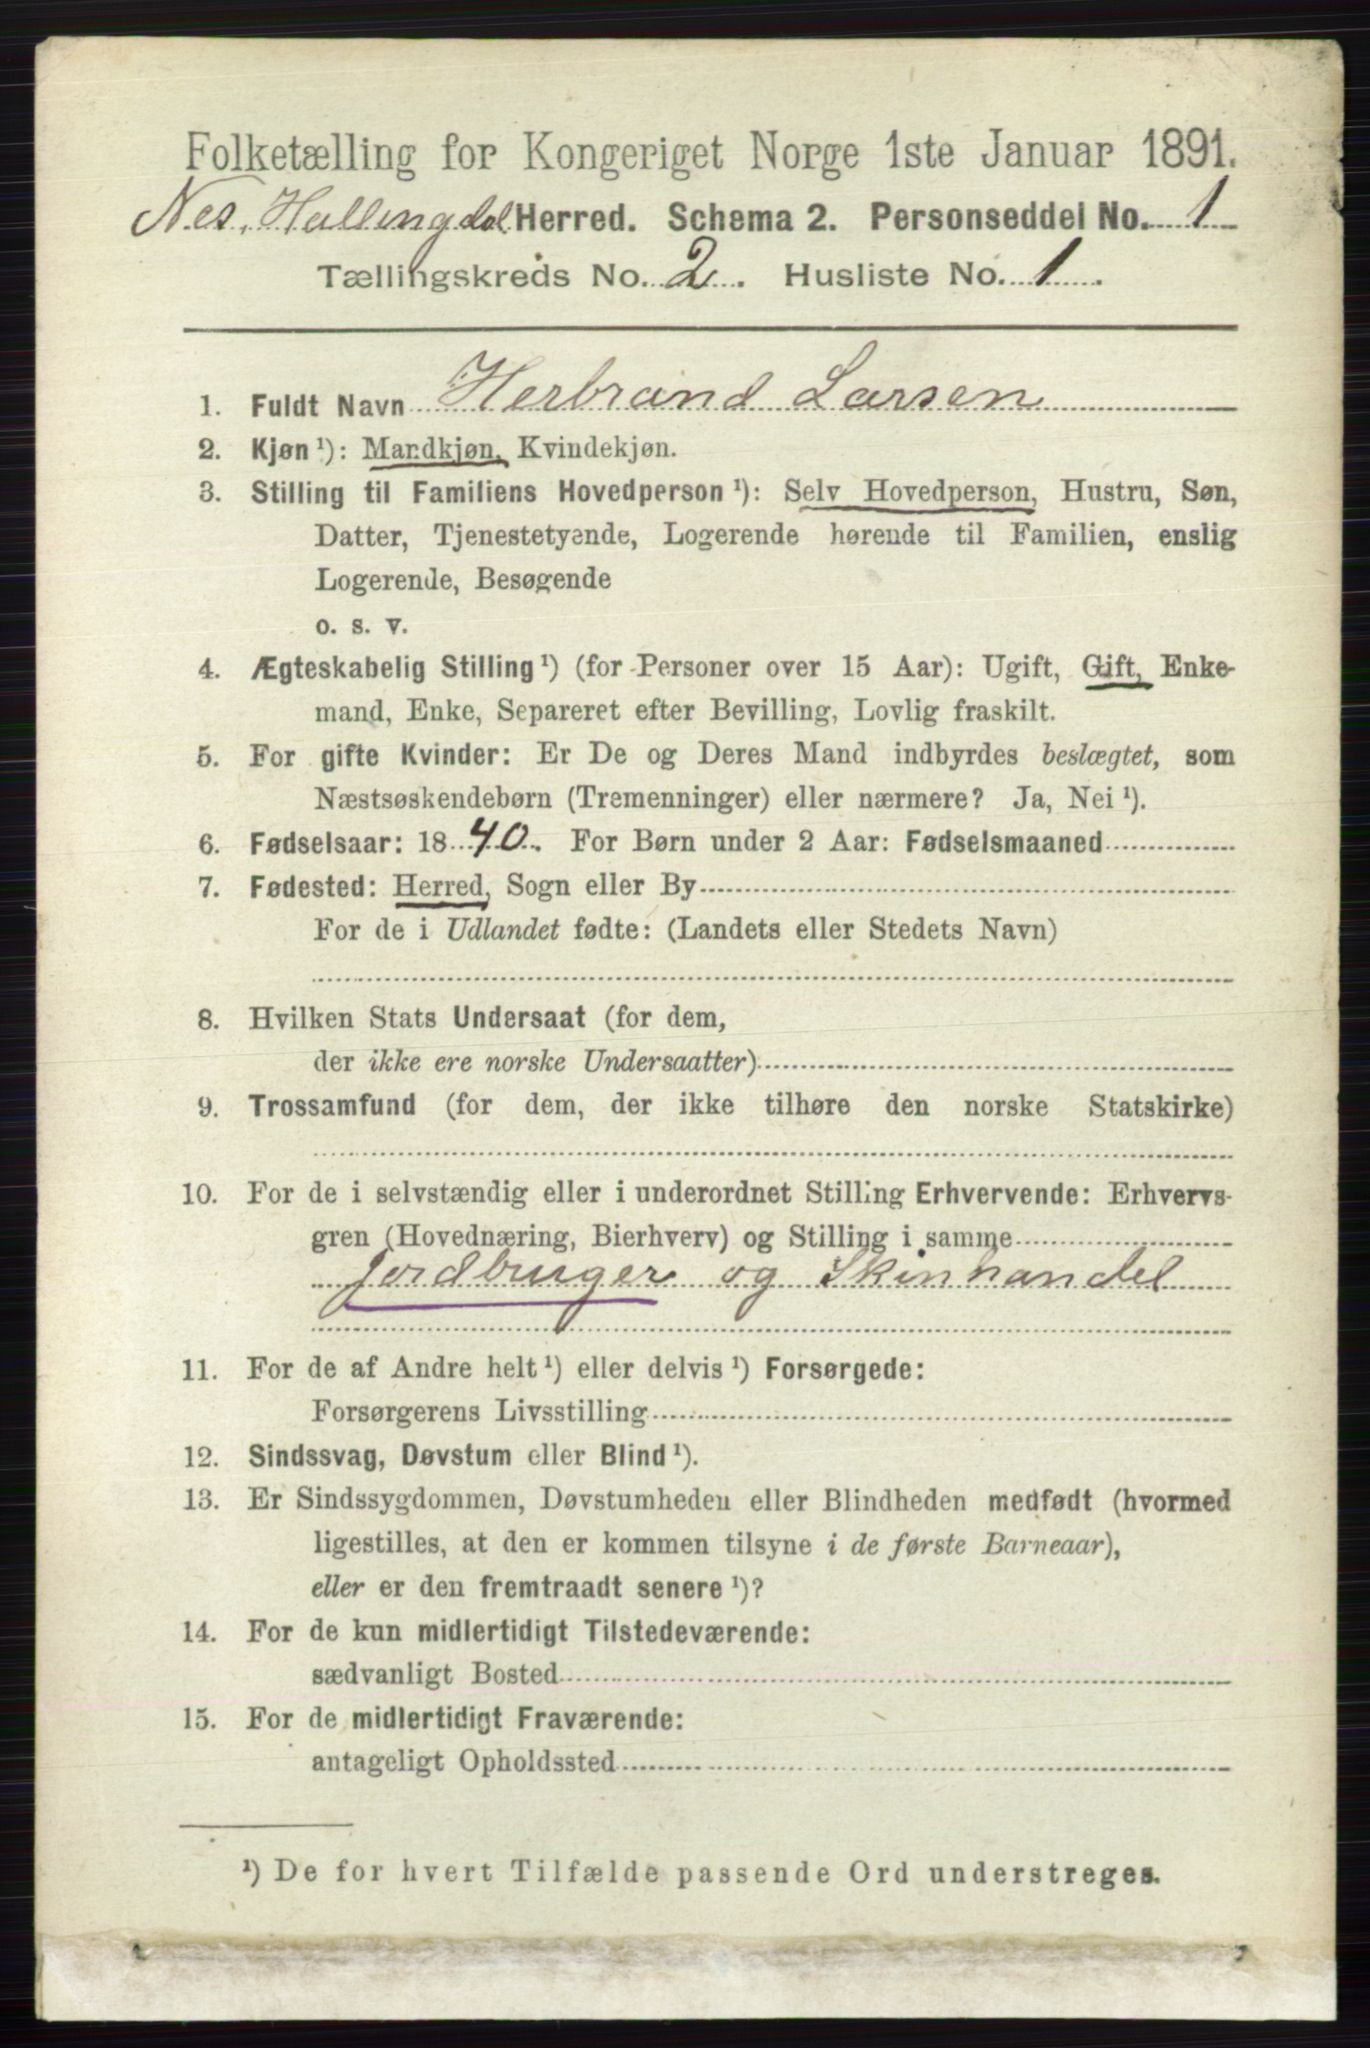 Folketælling for Kongeriget Norge 1ste Januar 1891.
Nes, Hallingdal Herred. Schema 2. Personseddel No. 1
Tællingskreds No. 2. Husliste No. 1.
1. Fuldt Navn Herbrand Larsen
2. Kjøn ¹): Mandkjøn, Kvindekjøn.
3. Stilling til Familiens Hovedperson ¹): Selv Hovedperson, Hustru, Søn,
Datter, Tjenestetyende, Logerende hørende til Familien, enslig
Logerende, Besøgende
o. s. v.
4. Ægteskabelig Stilling ¹) (for Personer over 15 Aar): Ugift, Gift, Enke-
mand, Enke, Separeret efter Bevilling, Lovlig fraskilt.
5. For gifte Kvinder: Er De og Deres Mand indbyrdes beslægtet, som
Næstsøskendebørn (Tremenninger) eller nærmere? Ja, Nei ¹).
6. Fødselsaar: 1840. For Børn under 2 Aar: Fødselsmaaned
7. Fødested: Herred, Sogn eller By
For de i Udlandet fødte: (Landets eller Stedets Navn)
8. Hvilken Stats Undersaat (for dem,
der ikke ere norske Undersaatter)
9. Trossamfund (for dem, der ikke tilhøre den norske Statskirke)
10. For de i selvstændig eller i underordnet Stilling Erhvervende: Erhvervs-
gren (Hovednæring, Bierhverv) og Stilling i samme
Jordbruger og Skinhandel
11. For de af Andre helt ¹) eller delvis ¹) Forsørgede:
Forsørgerens Livsstilling
12. Sindssvag, Døvstum eller Blind ¹).
13. Er Sindssygdommen, Døvstumheden eller Blindheden medfødt (hvormed
ligestilles, at den er kommen tilsyne i de første Barneaar),
eller er den fremtraadt senere ¹)?
14. For de kun midlertidigt Tilstedeværende:
sædvanligt Bosted
15. For de midlertidigt Fraværende:
antageligt Opholdssted
¹) De for hvert Tilfælde passende Ord understreges.